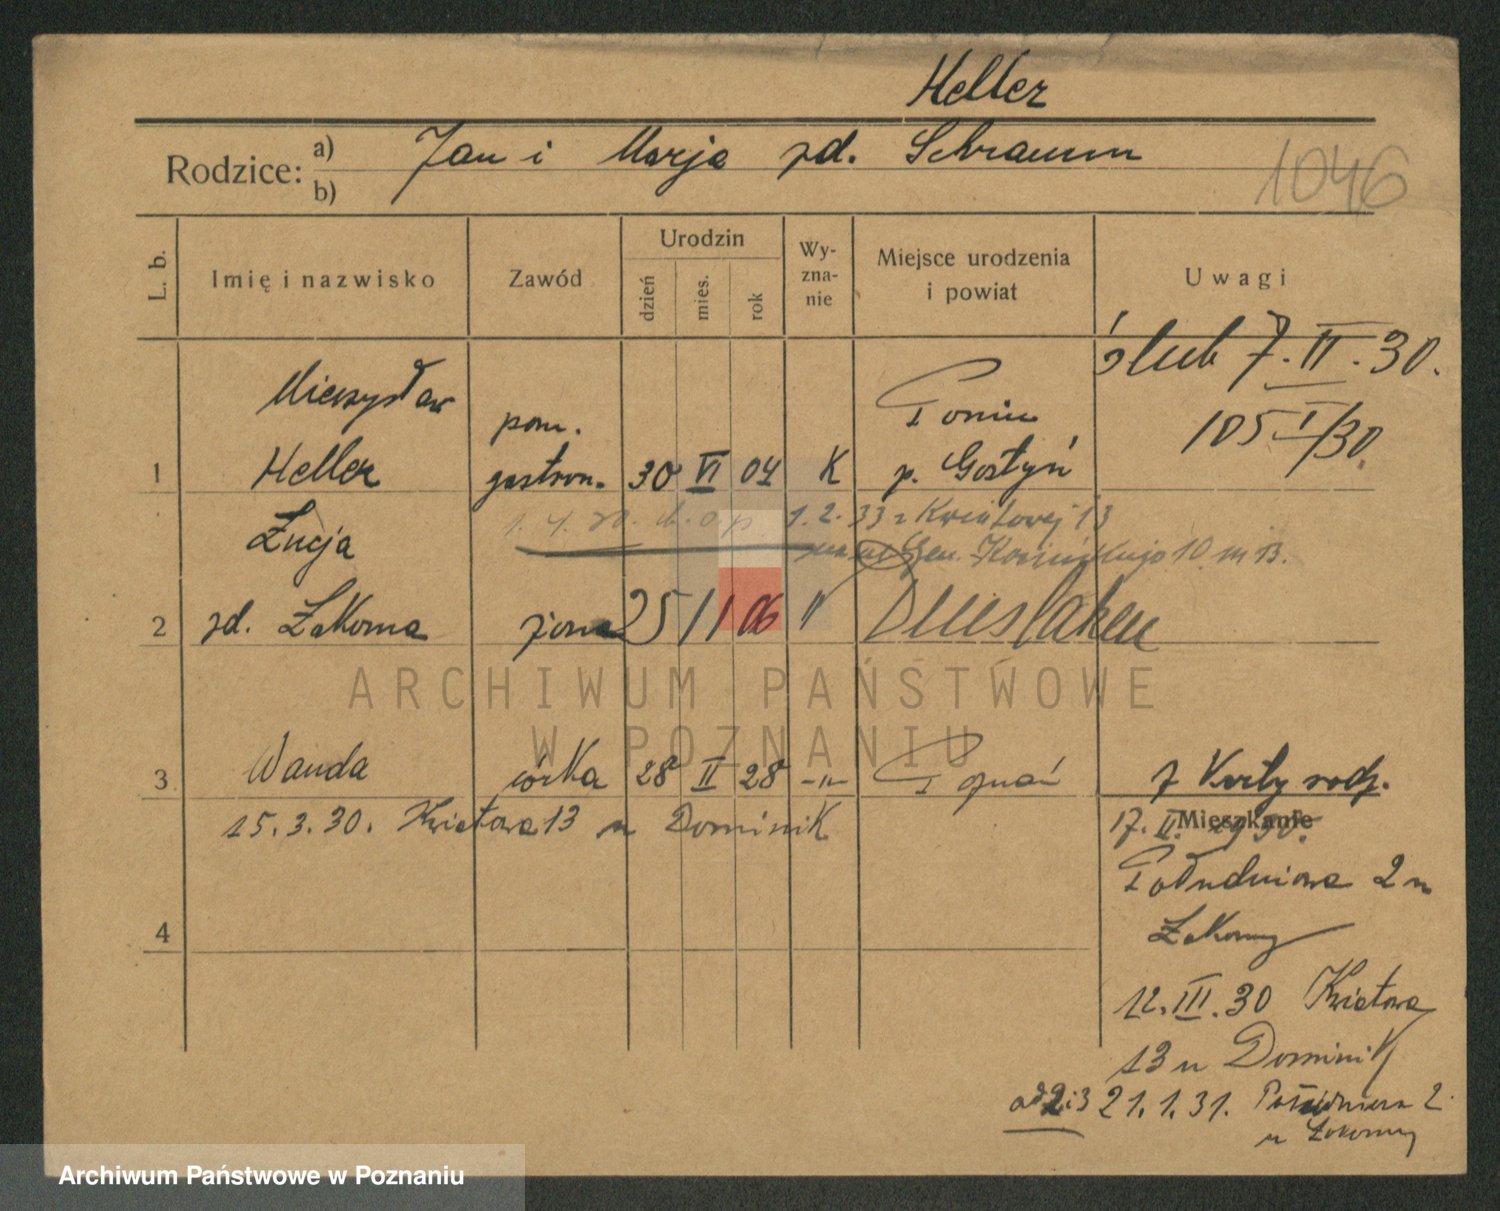 Heller
Rodzice: a) Jan i Marja zd. Schramm
b)
1046
L. b.
Imię i nazwisko
Zawód
Urodzin
dzień
mies.
rok
Wy-
zna-
nie
Miejsce urodzenia
i powiat
Uwagi
ślub 7.II.30.
105 I/30.
Mieczysław
pom.
Ponin
1 Heller gastron. 30 VI 04 K p. Gostyń
Łucja
1.2.33 z Kwiatowej 13
Gen. Kosińskiego 10 m 13.
2 zd. Łakoma żona 25 11 06 " Dinslaken
3 Wanda córka 28 II 28 -"- Poznań z Karty rodz.
15.3.30. Kwiatowa 13 u Dominik
Mieszkanie
17.II.1930.
Południowa 2 u
Łakomy
4
12.III.30 Kwiatowa
13 u Dominik
ad 2 i 3 21.1.31. Południowa 2
u Łakomy
ARCHIWUM PAŃSTWOWE
W POZNANIU
Archiwum Państwowe w Poznaniu